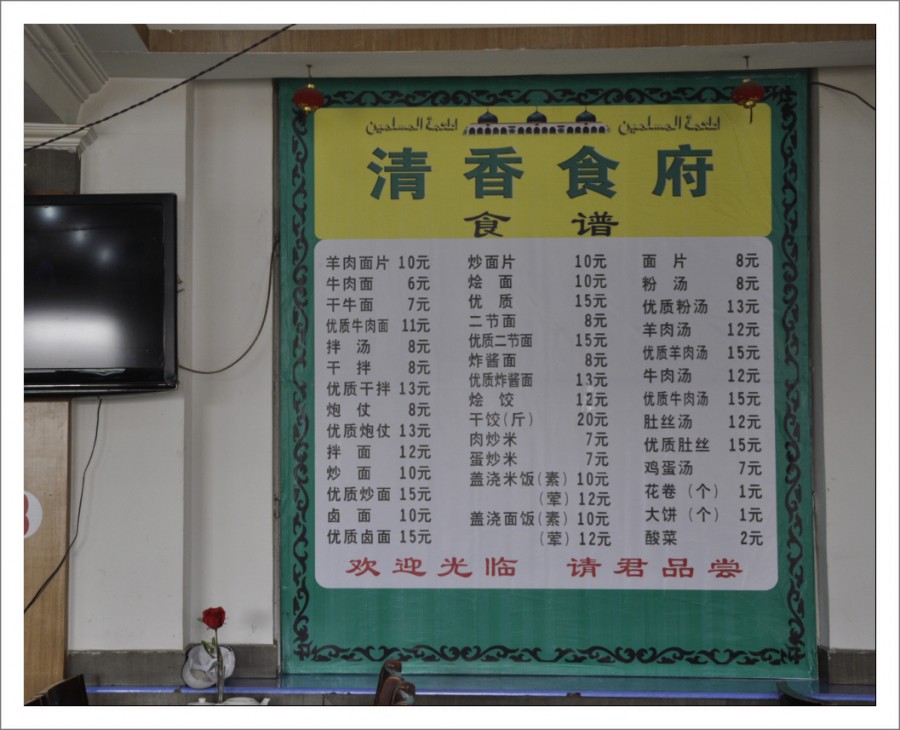 اطعمة المسلمين اطعمة المسلمين
清香食府
食谱
羊肉面片 10元
牛肉面 6元
干牛面 7元
优质牛肉面 11元
拌汤 8元
干拌 8元
优质干拌 13元
炮仗 8元
优质炮仗 13元
拌面 12元
炒面 10元
优质炒面 15元
卤面 10元
优质卤面 15元
炒面片 10元
烩面 10元
优质 15元
二节面 8元
优质二节面 15元
炸酱面 8元
优质炸酱面 13元
烩饺 12元
干饺(斤) 20元
肉炒米 7元
蛋炒米 7元
盖浇米饭(素) 10元
(荤) 12元
盖浇面饭(素) 10元
(荤) 12元
面片 8元
粉汤 8元
优质粉汤 13元
羊肉汤 12元
优质羊肉汤 15元
牛肉汤 12元
优质牛肉汤 15元
肚丝汤 12元
优质肚丝 15元
鸡蛋汤 7元
花卷(个) 1元
大饼(个) 1元
酸菜 2元
欢迎光临 请君品尝